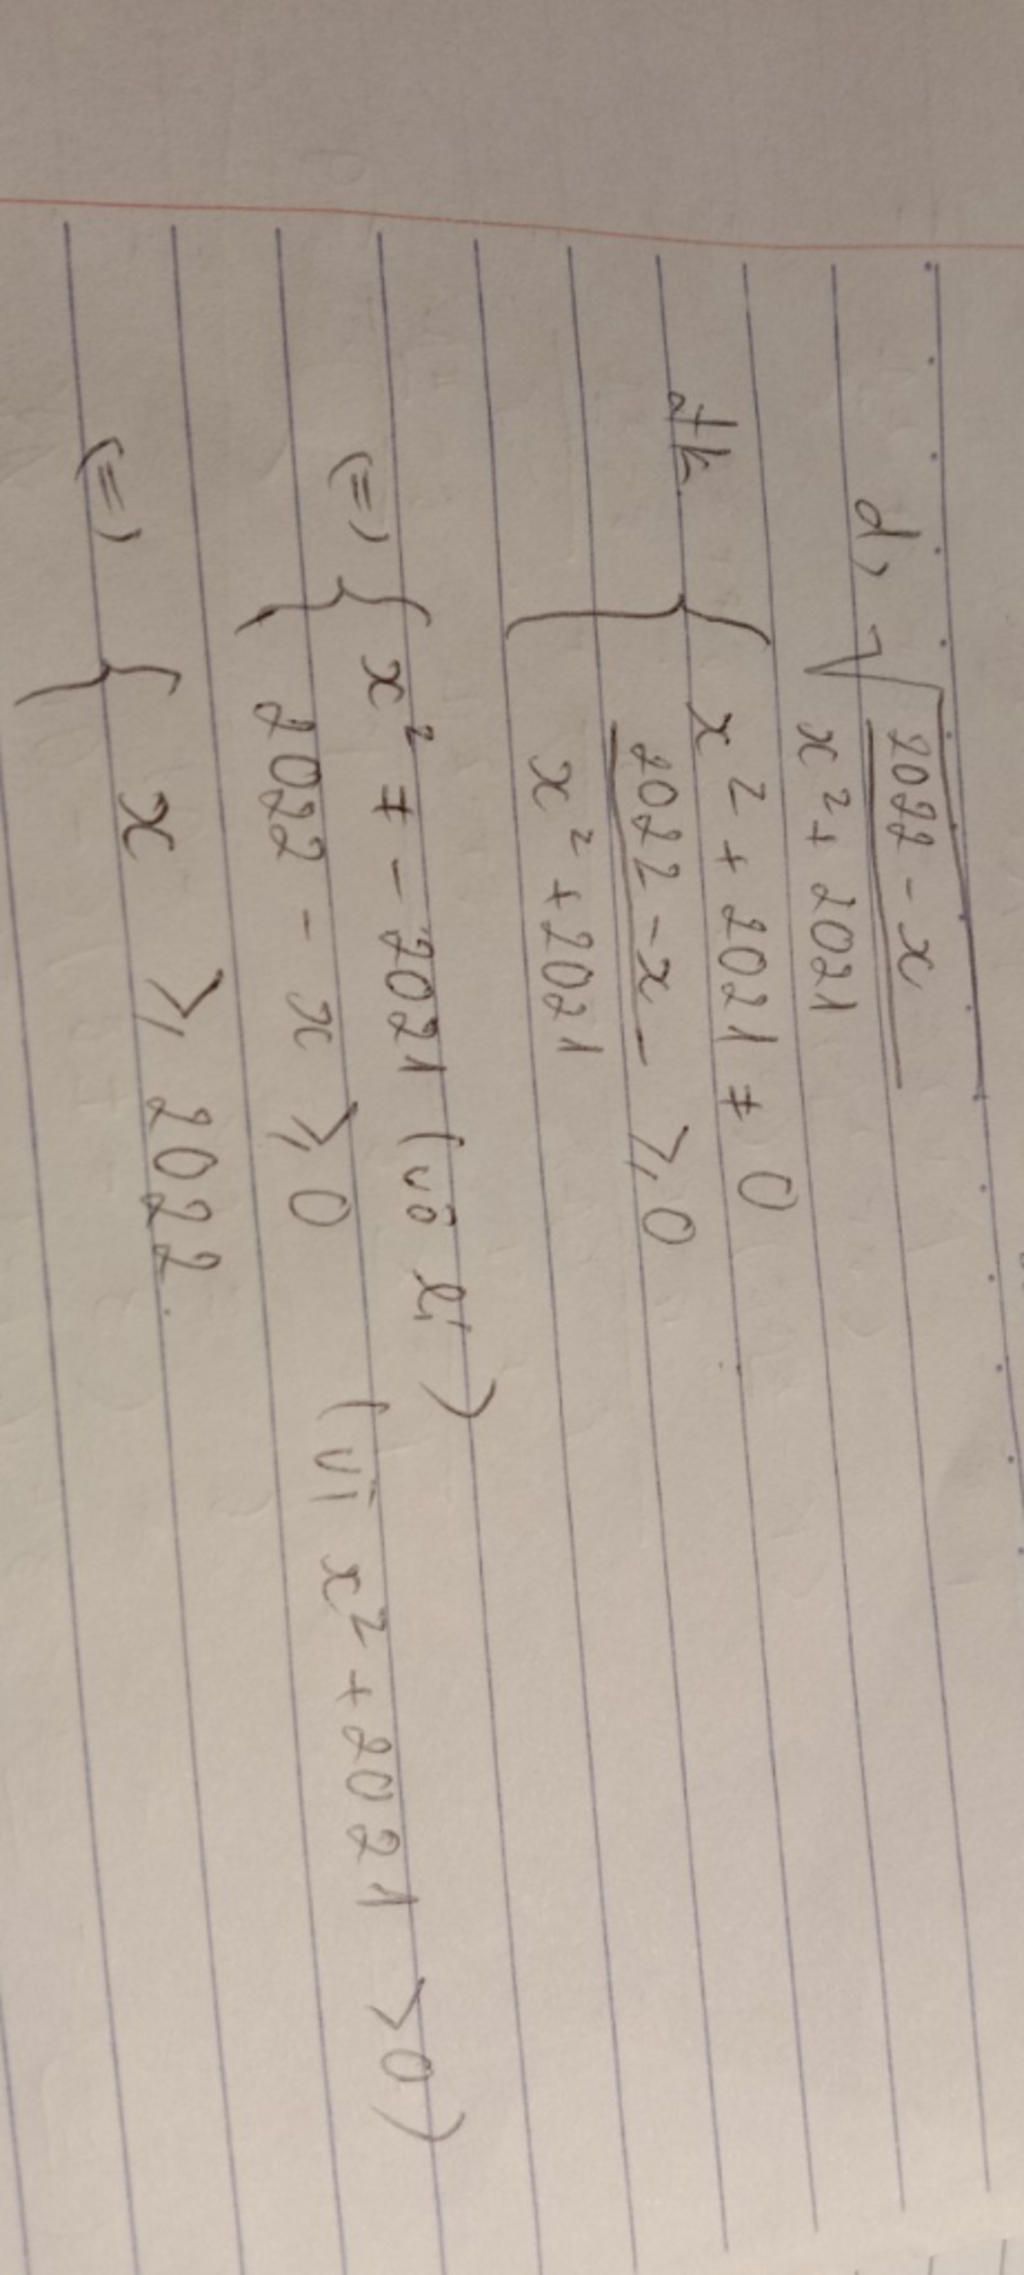 d, √(2022 - x)/(x² + 2021)
đk { x² + 2021 ≠ 0
(2022 - x)/(x² + 2021) ⩾ 0
(=) { x² ≠ - 2021 (vô lí)
2022 - x ⩾ 0 (vì x² + 2021 > 0)
(=) { x ⩾ 2022.